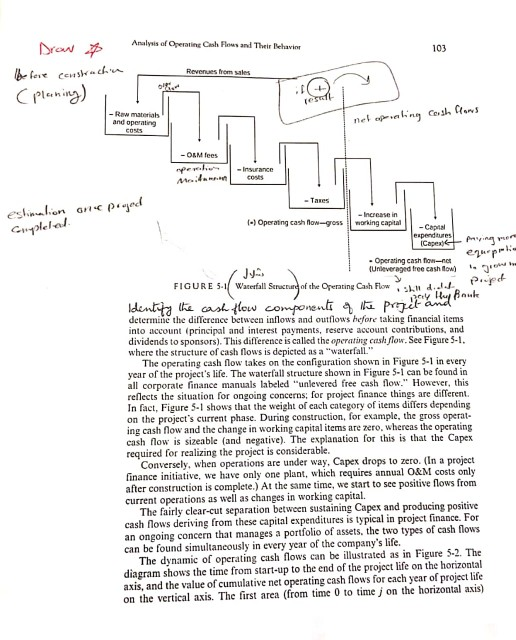 Draw
Analysis of Operating Cash Flows and Their Behavior
103
Before construction
(planing)
Revenues from sales
if + result
net operating cash flows
– Raw materials
and operating
costs
– O&M fees
operation
– Insurance
costs
– Taxes
estimation
project
Completed.
(=) Operating cash flow—gross
– Increase in
working capital
– Capital
expenditures
(Capex)
paying more
project
= Operating cash flow—net
(Unleveraged free cash flow)
FIGURE 5-1 Waterfall Structure of the Operating Cash Flow
still didn't
pay the Bank
Identify the cash flow components of the project and
determine the difference between inflows and outflows before taking financial items
into account (principal and interest payments, reserve account contributions, and
dividends to sponsors). This difference is called the operating cash flow. See Figure 5-1,
where the structure of cash flows is depicted as a “waterfall.”
The operating cash flow takes on the configuration shown in Figure 5-1 in every
year of the project's life. The waterfall structure shown in Figure 5-1 can be found in
all corporate finance manuals labeled “unlevered free cash flow.” However, this
reflects the situation for ongoing concerns; for project finance things are different.
In fact, Figure 5-1 shows that the weight of each category of items differs depending
on the project's current phase. During construction, for example, the gross operat-
ing cash flow and the change in working capital items are zero, whereas the operating
cash flow is sizeable (and negative). The explanation for this is that the Capex
required for realizing the project is considerable.
Conversely, when operations are under way, Capex drops to zero. (In a project
finance initiative, we have only one plant, which requires annual O&M costs only
after construction is complete.) At the same time, we start to see positive flows from
current operations as well as changes in working capital.
The fairly clear-cut separation between sustaining Capex and producing positive
cash flows deriving from these capital expenditures is typical in project finance. For
an ongoing concern that manages a portfolio of assets, the two types of cash flows
can be found simultaneously in every year of the company's life.
The dynamic of operating cash flows can be illustrated as in Figure 5-2. The
diagram shows the time from start-up to the end of the project life on the horizontal
axis, and the value of cumulative net operating cash flows for each year of project life
on the vertical axis. The first area (from time 0 to time j on the horizontal axis)